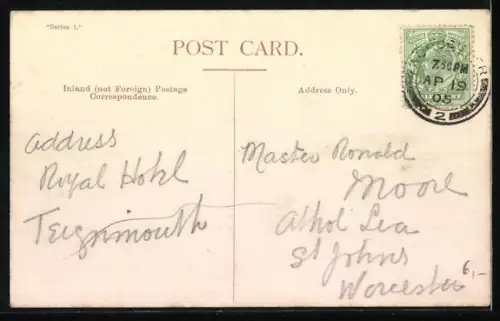 "Series 1."
POST CARD.
Inland (not Foreign) Postage
Correspondence.
Address Only.
7 30 PM
AP 19
05
2
Address
Royal Hotel
Teignmouth
Master Ronald
Moore
Athol Lea
St Johns
Worcester
6,-